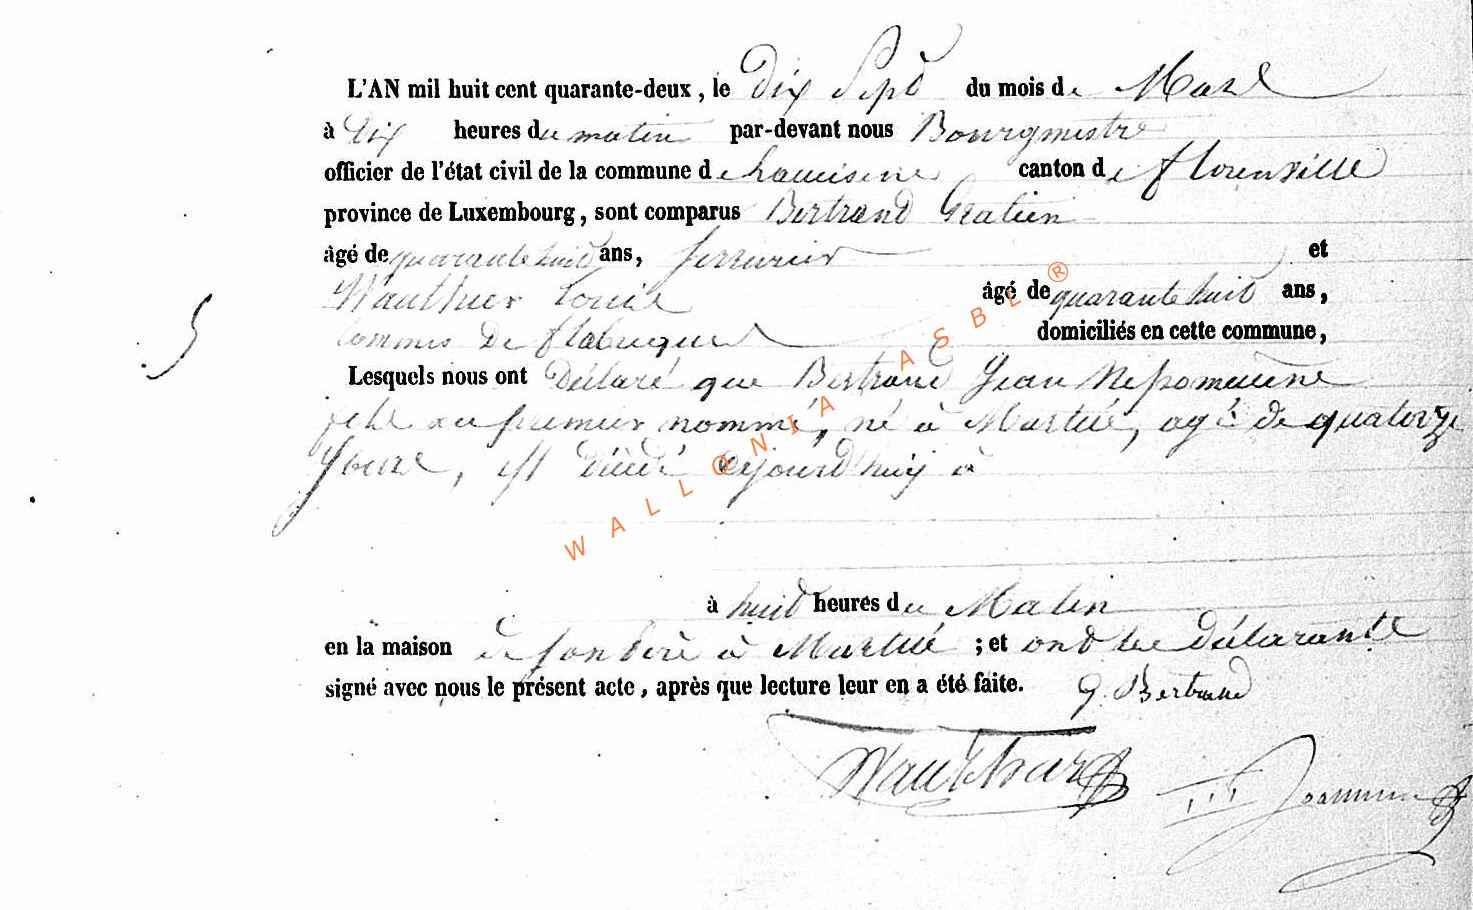 L'AN mil huit cent quarante-deux, le Dix Sept du mois de Mars
à Dix heures du matin par-devant nous Bourgmestre
officier de l'état civil de la commune de canton de florenville
province de Luxembourg, sont comparus Bertrand Gratien
âgé de quarante huit ans, serrurier et
Wauthier Louis âgé de quarante huit ans,
commis de domiciliés en cette commune,
Lesquels nous ont Déclaré que Bertrand Jean Népomucène
fils au premier nommé, né à Martué, agé de quatorze
5
Jours, est décédé aujourd'huij à
à huit heures du Matin
en la maison de son Père à Martué ; et ont les déclarants
signé avec nous le présent acte, après que lecture leur en a été faite. G. Bertrand
WALLONIA ASBL ®